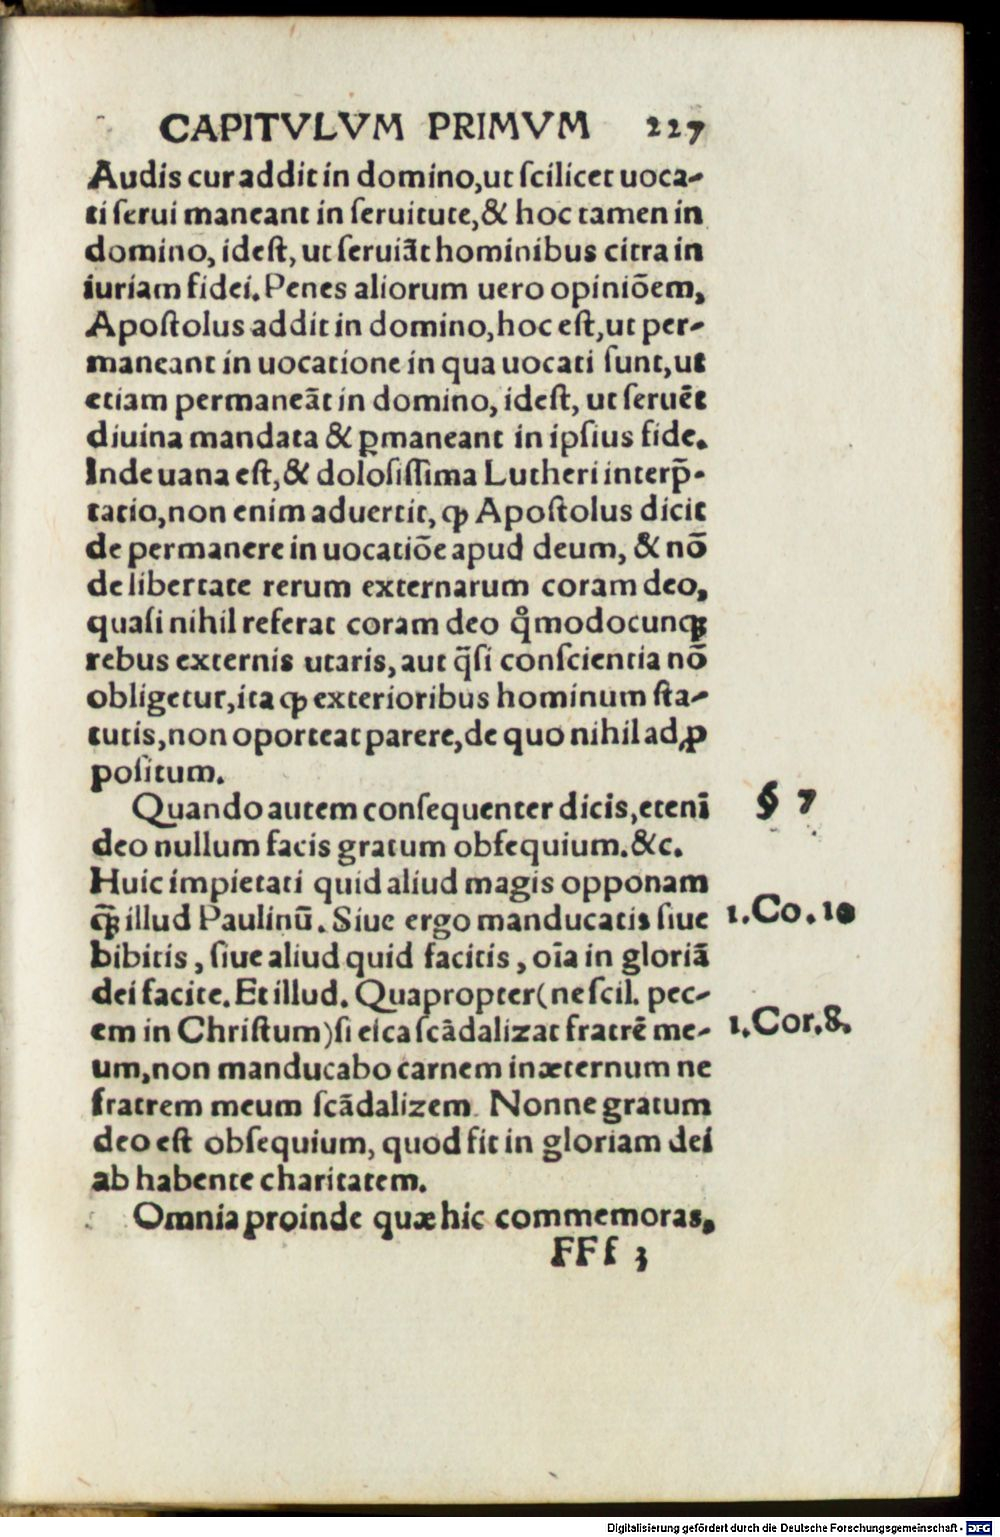 CAPITVLVM PRIMVM 227
Audis cur addit in domino, ut ſcilicet uoca-
ti ſerui maneant in ſeruitute, & hoc tamen in
domino, ideſt, ut ſeruiãt hominibus citra in
iuriam fidei. Penes aliorum uero opiniõem,
Apoſtolus addit in domino, hoc eſt, ut per-
maneant in uocatione in qua uocati ſunt, ut
etiam permaneãt in domino, ideſt, ut ſeruẽt
diuina mandata & ꝑmaneant in ipſius fide.
Inde uana eſt, & doloſiſſima Lutheri interp̃-
tatio, non enim aduertit, ꝙ Apoſtolus dicit
de permanere in uocatiõe apud deum, & nõ
de libertate rerum externarum coram deo,
quaſi nihil referat coram deo qͦmodocunqꝫ
rebus externis utaris, aut q̃ſi conſcientia nõ
obligetur, ita ꝙ exterioribus hominum ſta-
tutis, non oporteat parere, de quo nihil ad ꝓ
poſitum.
Quando autem conſequenter dicis, etenĩ
§ 7
deo nullum facis gratum obſequium. &c.
Huic impietati quid aliud magis opponam
q̃ꝫ illud Paulinũ. Siue ergo manducatis ſiue
1. Co. 10
bibitis, ſiue aliud quid facitis, oĩa in gloriã
dei facite. Et illud. Quapropter (ne ſcil. pec-
em in Chriſtum) ſi eſca ſcãdalizat fratrẽ me-
1. Cor. 8.
um, non manducabo carnem in æternum ne
fratrem meum ſcãdalizem. Nonne gratum
deo eſt obſequium, quod fit in gloriam dei
ab habente charitatem.
Omnia proinde quæ hic commemoras,
FFf 3
Digitalisierung gefördert durch die Deutsche Forschungsgemeinschaft - DFG